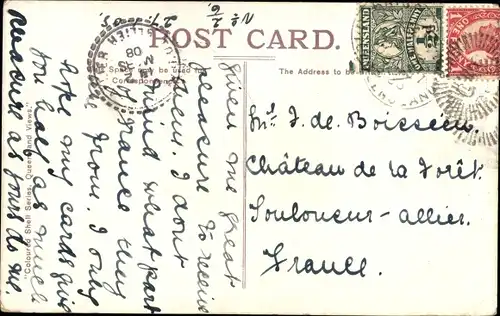 No 2/6
27.5.
POST CARD.
This Space may be used for
Correspondence.
The Address to be
QUEENSLAND
ONE
given me great
pleasure to receive
them. I dont
mind what part
of France they
from. I only
hope my cards give
you half as much
pleasure as yours do me.
"Coloured Shell Series, Queensland Views."
J. de Boisséeu,
Château de la Forêt
allier
France.